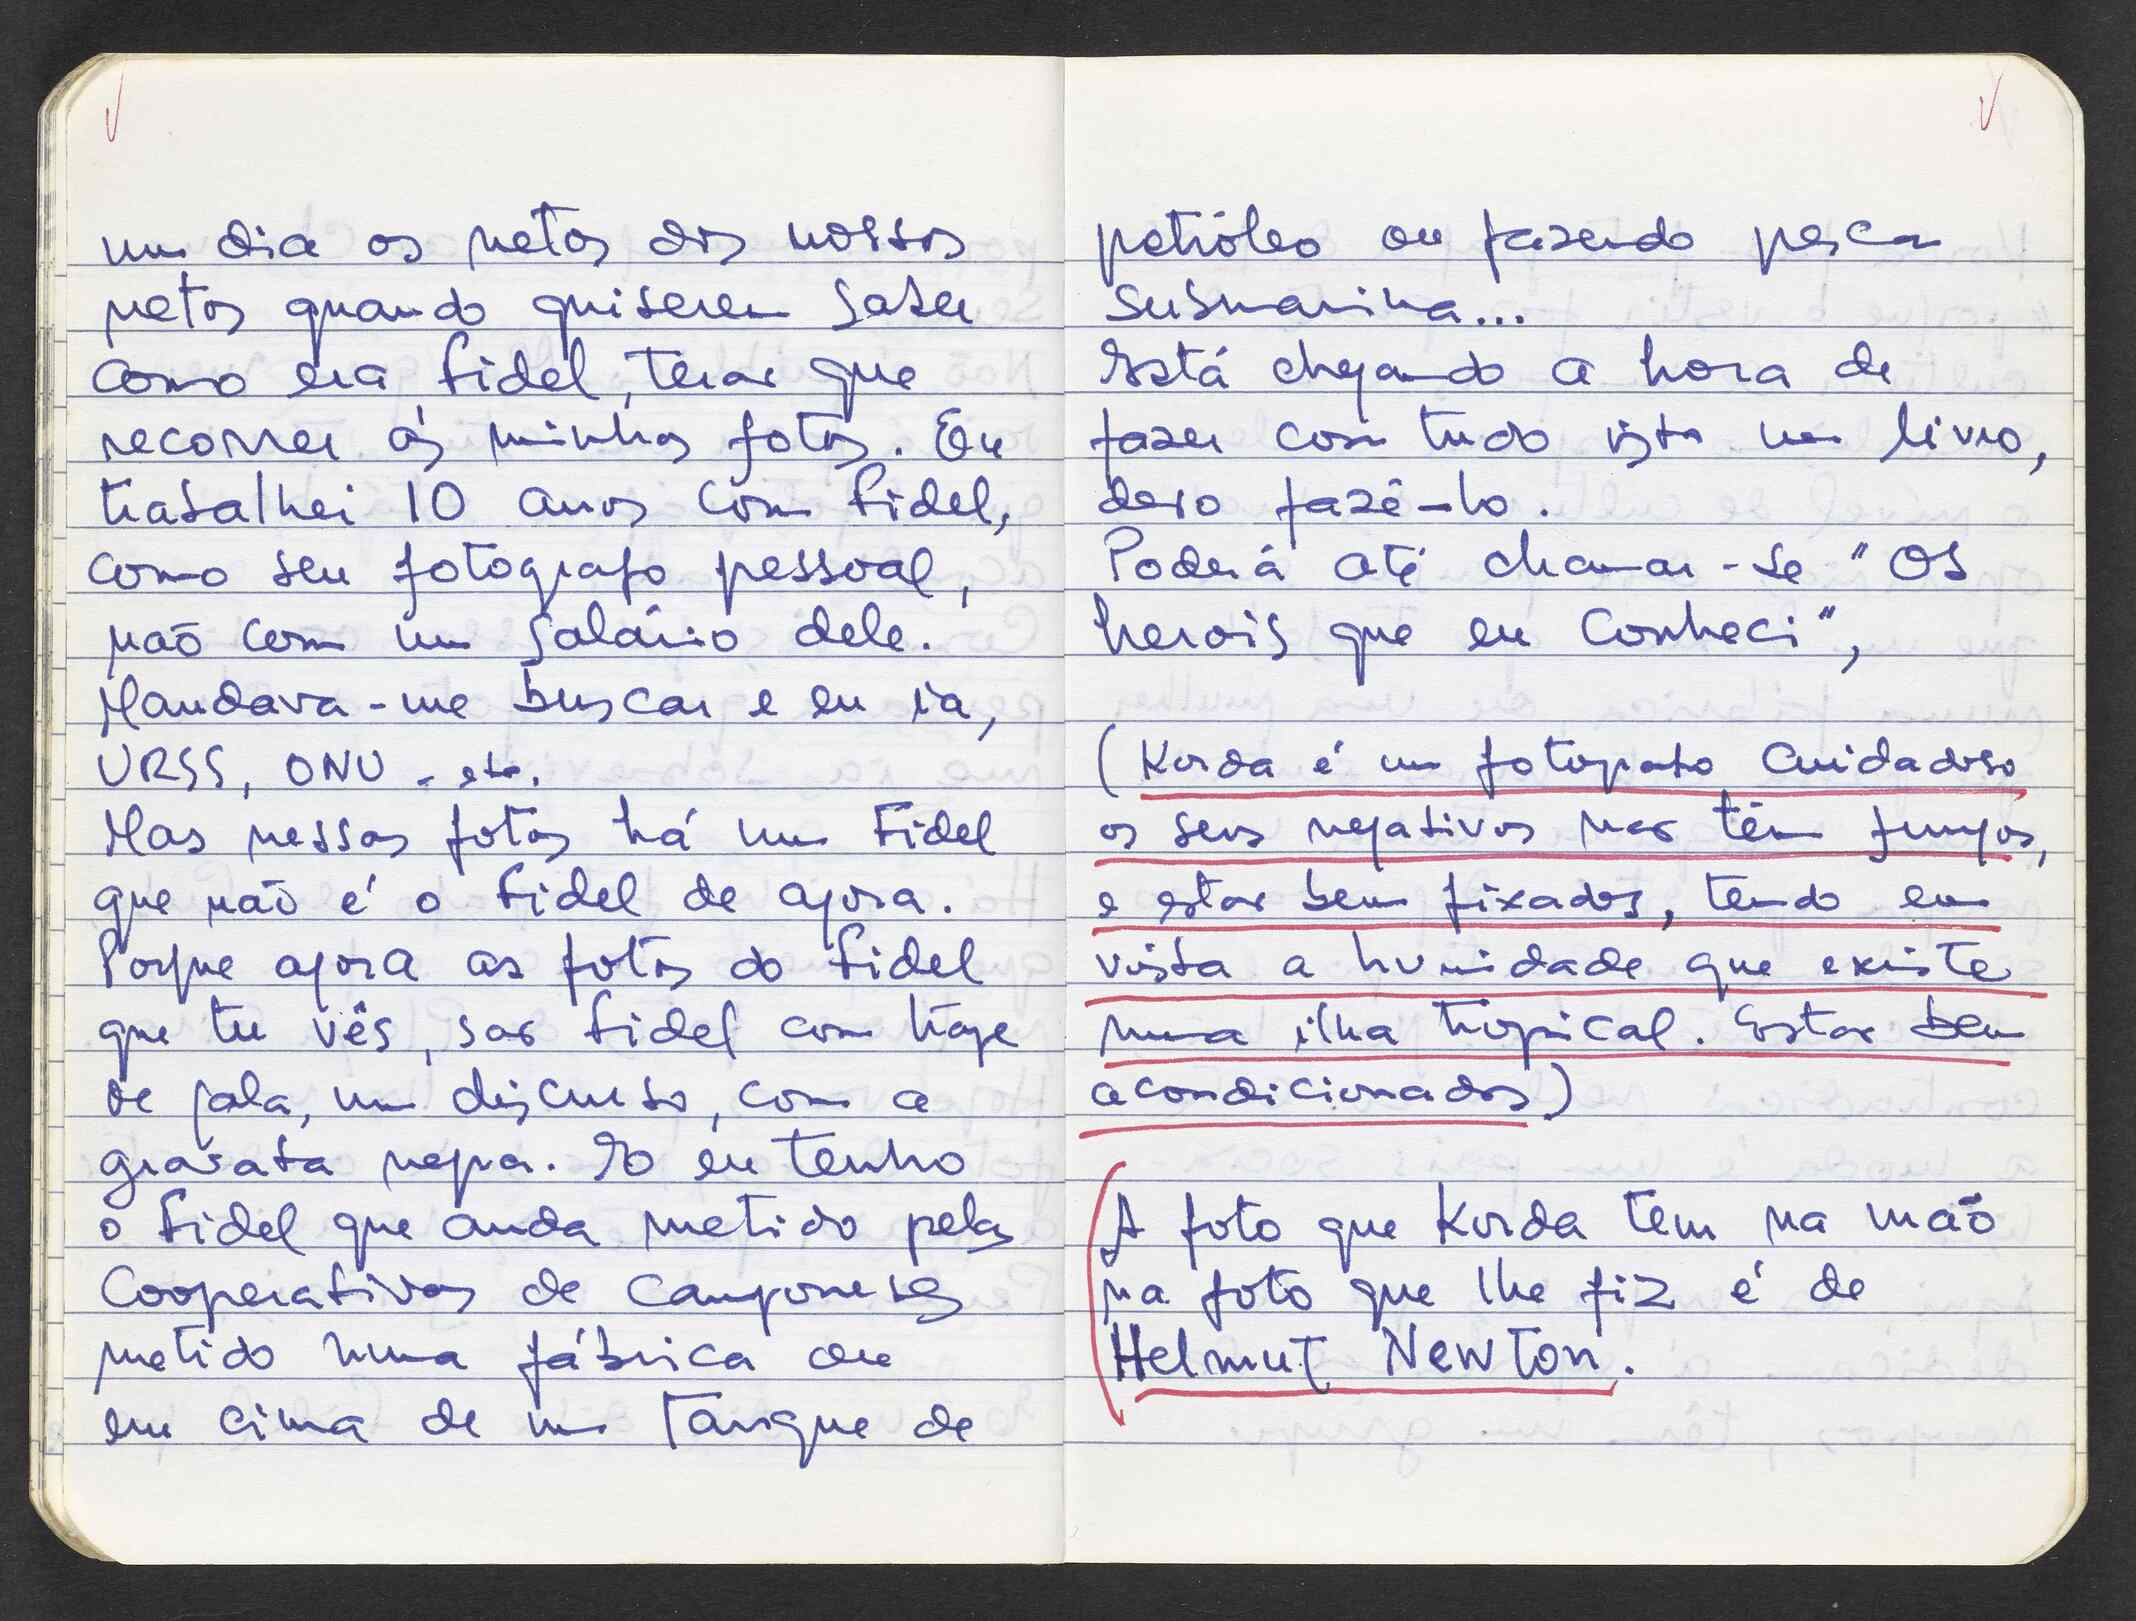 um dia os netos dos nossos
netos quando quiserem saber
como era Fidel, terão que
recorrer ás minhas fotos. Eu
trabalhei 10 anos com Fidel,
como seu fotografo pessoal,
não com um salário dele.
Mandava-me buscar e eu ia,
URSS, ONU - etc.
Mas nessas fotos há um Fidel
que não é o Fidel de agora.
Porque agora as fotos do Fidel
que tu vês, são Fidel com traje
de gala, um discurso, com a
gravata negra. E eu tenho
o Fidel que anda metido pelas
Cooperativas de camponeses
metido numa fábrica ou
em cima de um Tanque de
petróleo ou fazendo pesca
submarina...
Está chegando a hora de
fazer com tudo isto um livro,
devo fazê-lo.
Poderá até chamar-se "OS
herois que eu Conheci",
(Korda é um fotografo cuidadoso
os seus negativos não têm fungos,
e estão bem fixados, tendo em
vista a humidade que existe
numa ilha tropical. Estão bem
acondicionados)
A foto que Korda tem na mão
na foto que lhe fiz é de
Helmut Newton.